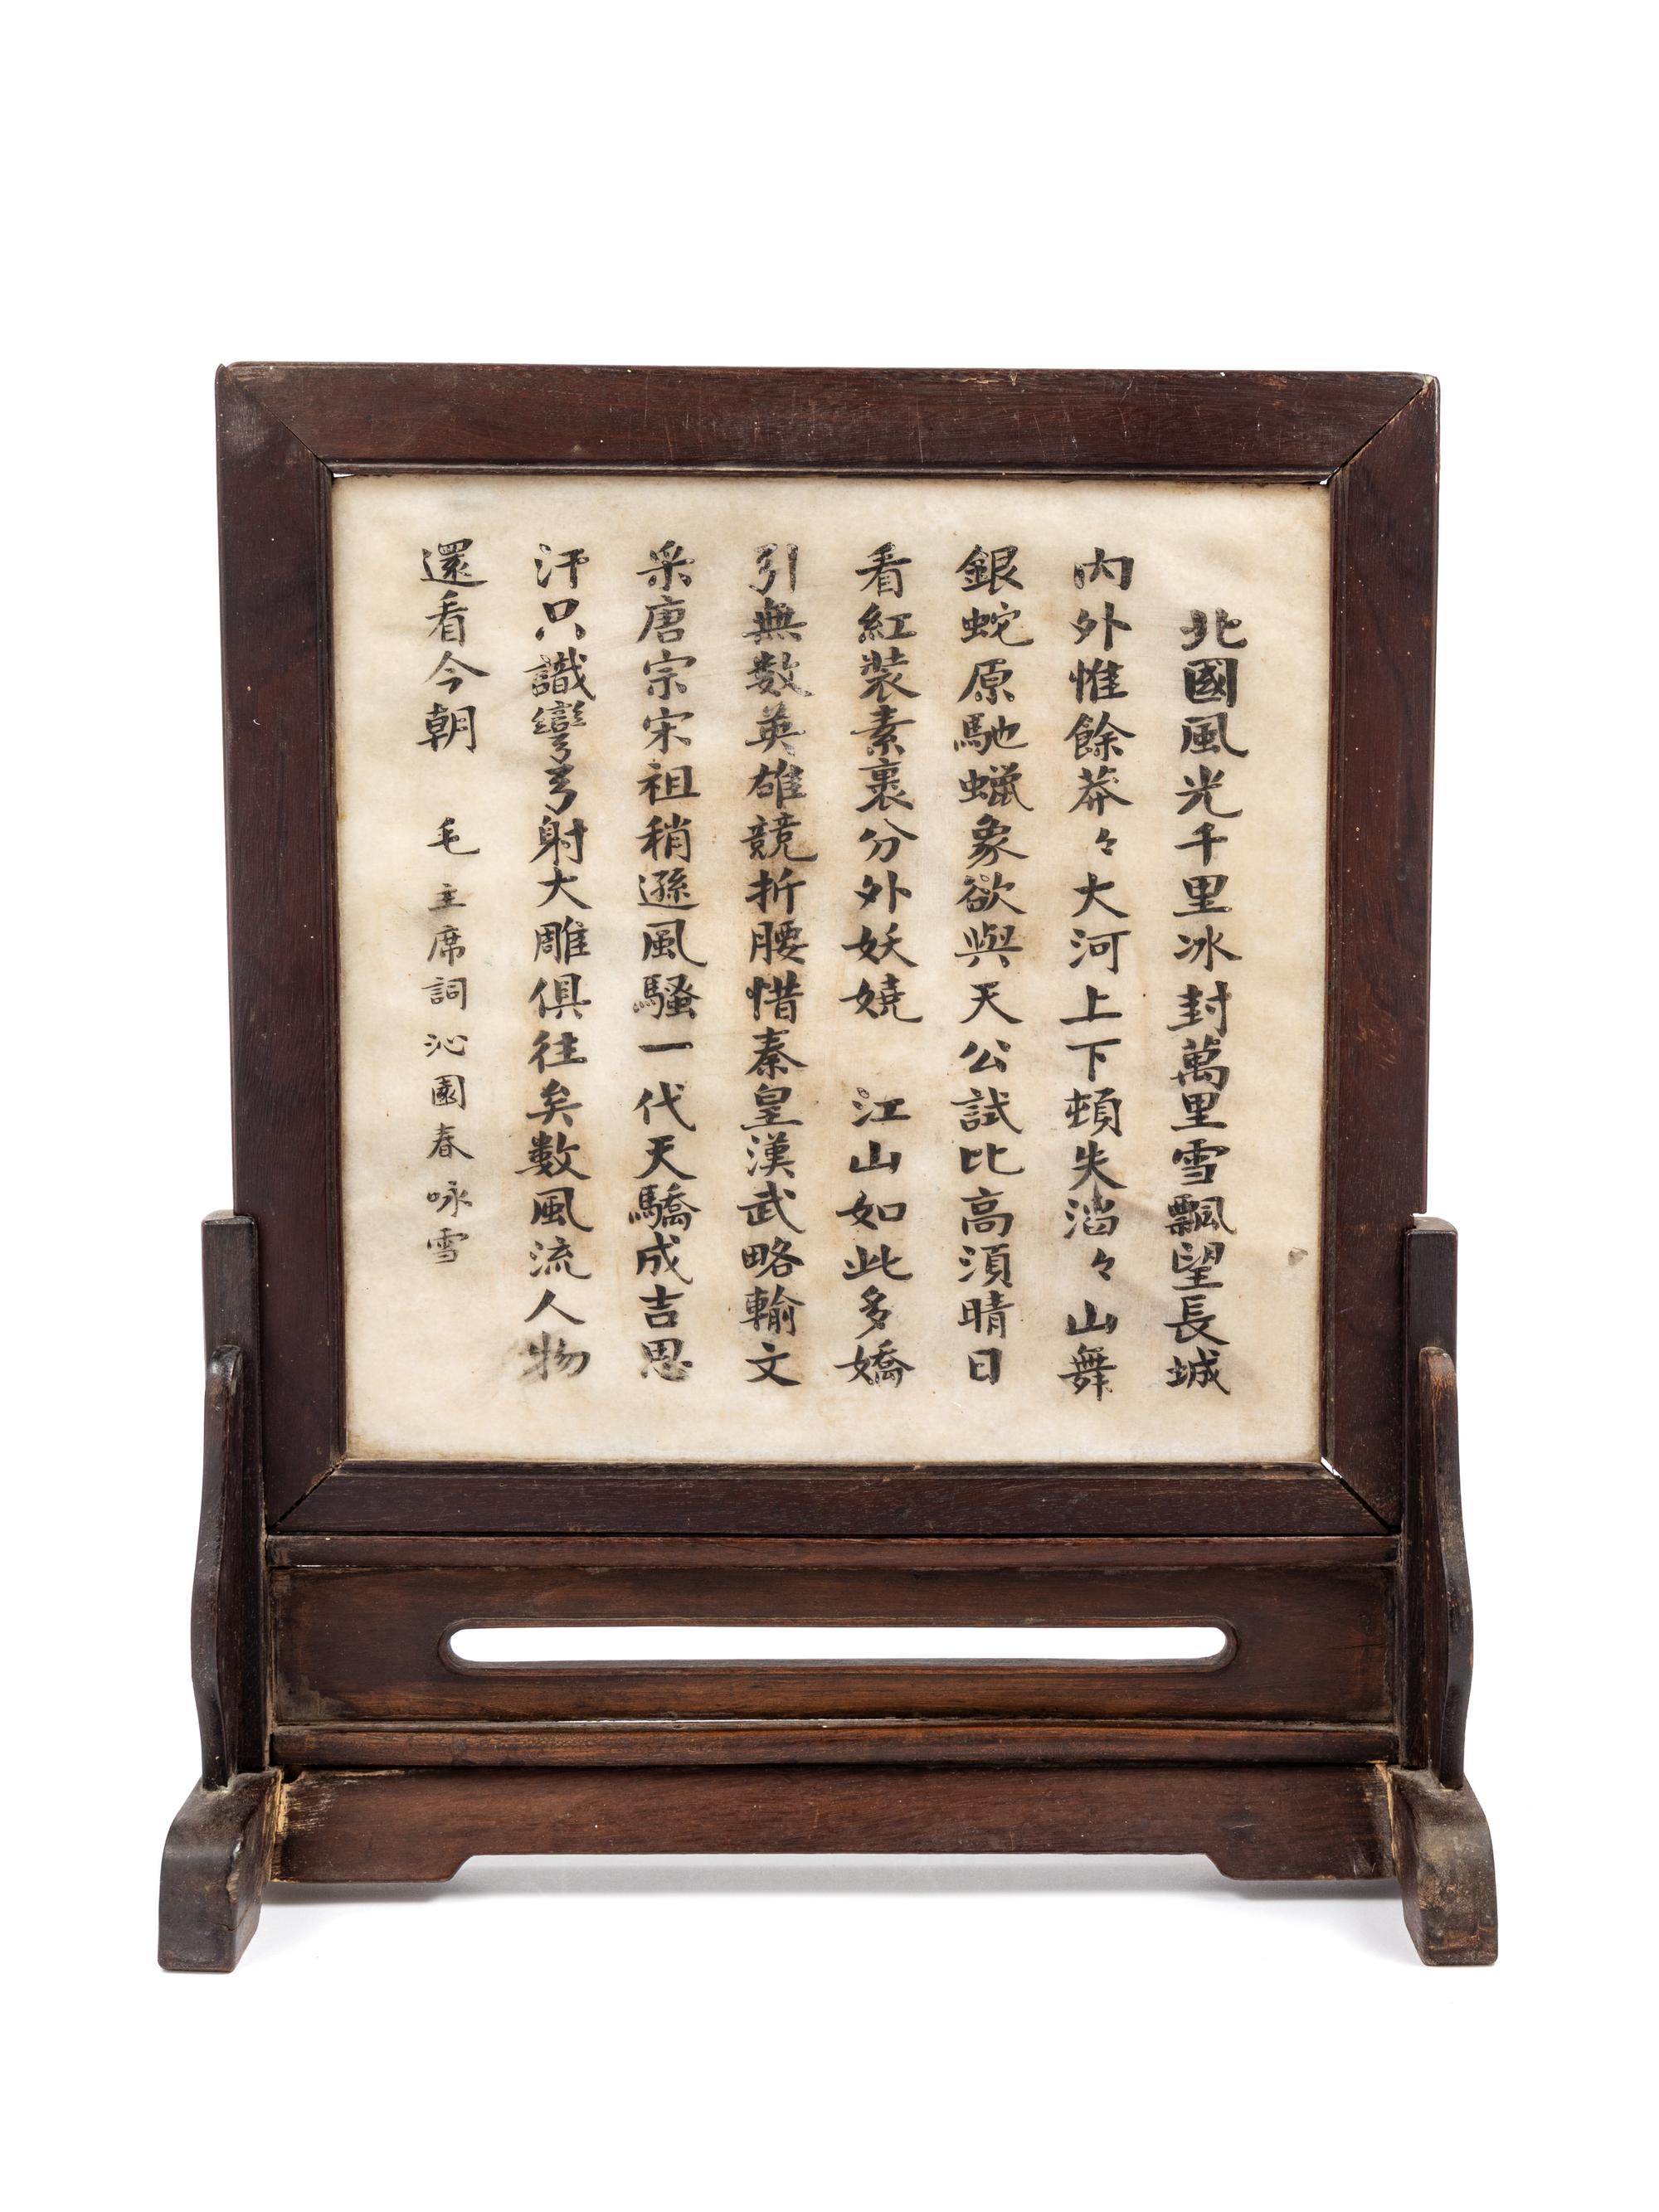 北國風光千里冰封萬里雪飄望長城
内外惟餘莽々大河上下頓失滔々山舞
銀蛇原馳蠟象欲與天公試比高須晴日
看紅裝素裹分外妖嬈 江山如此多嬌
引無数英雄競折腰惜秦皇漢武略輸文
采唐宗宋祖稍遜風騷一代天驕成吉思
汗只識彎弓射大雕俱往矣数風流人物
還看今朝 毛主席詞沁園春咏雪